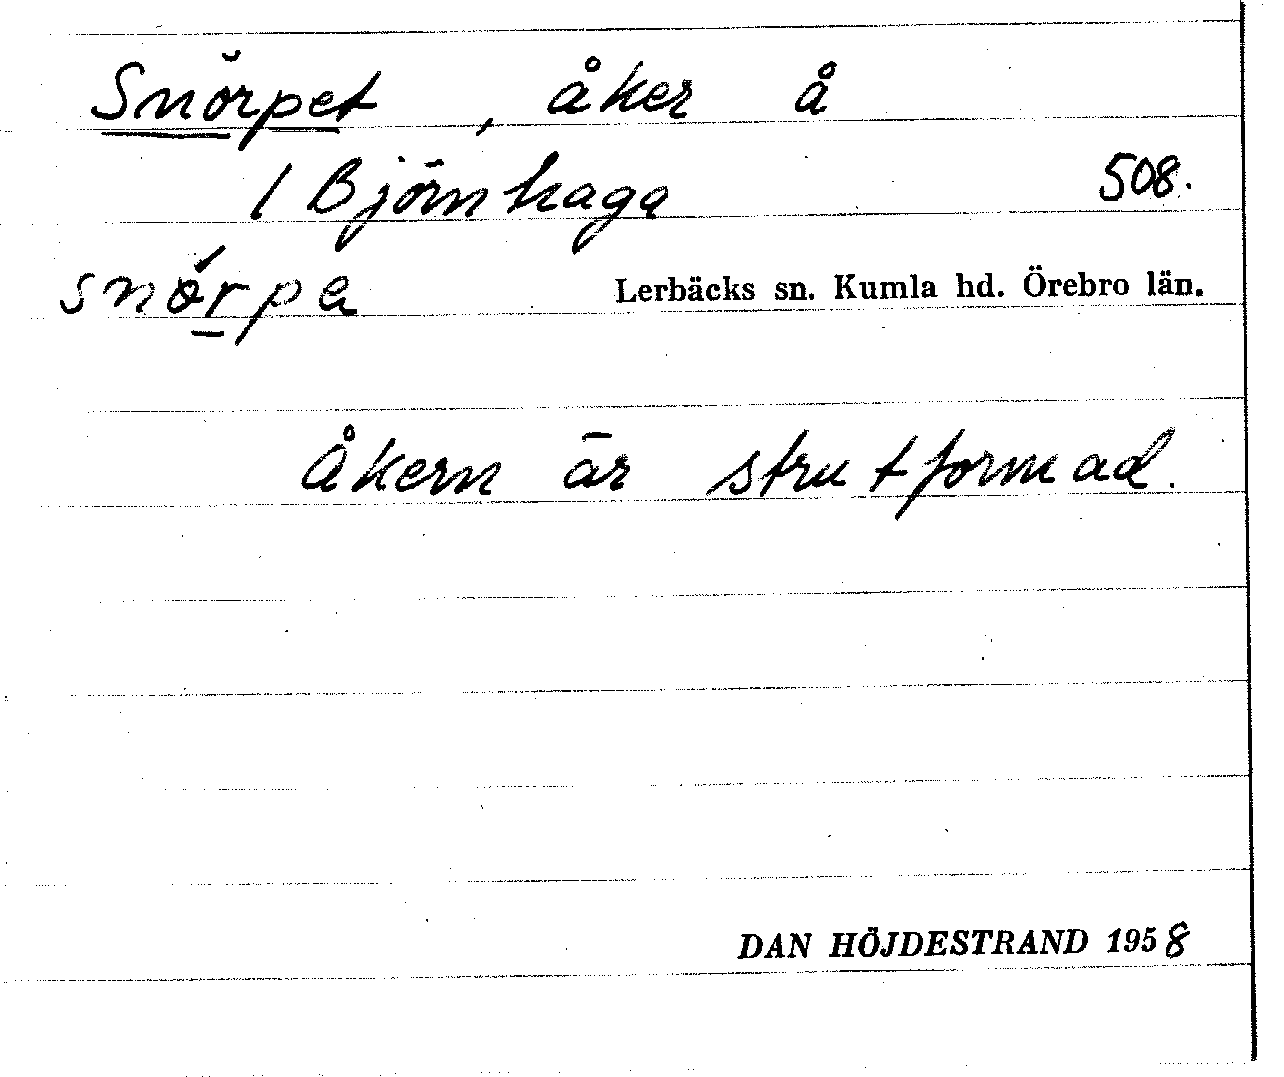 Snörpet, åker å
1 Björnhaga 508.
snörpa Lerbäcks sn. Kumla hd. Örebro län.
Åkern är strutformad.
DAN HÖJDESTRAND 1958